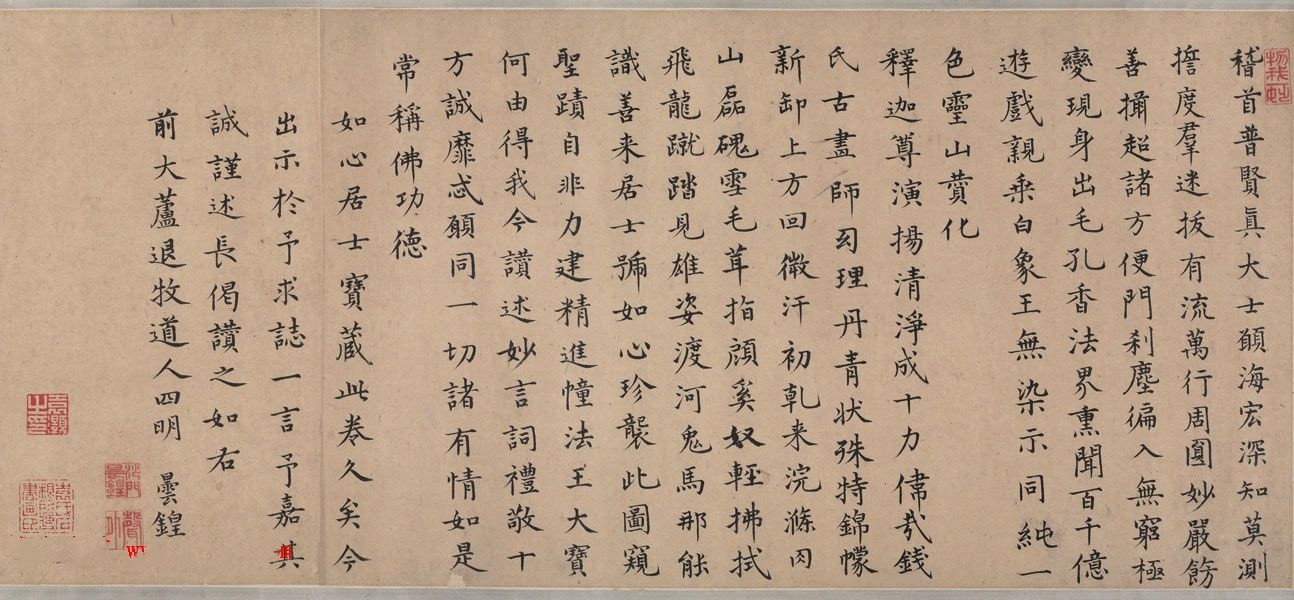 稽首普賢真大士願海宏深知莫測
誓度羣迷拔有流萬行周圓妙嚴餝
善攝超諸方便門刹塵徧入無窮極
變現身出毛孔香法界熏聞百千億
遊戲親乘白象王無染示同純一
色靈山贊化
釋迦尊演揚清淨成十力偉哉錢
氏古畫師匀理丹青狀殊特錦幪
新卸上方回微汗初乹来浣滌罔
山磊磈雪毛茸指顧奚奴輕拂拭
飛龍蹴踏見雄姿渡河鬼馬那能
識善来居士號如心珍襲此圖窺
聖蹟自非力建精進幢法王大寶
何由得我今讚述妙言詞禮敬十
方誠靡忒願同一切諸有情如是
常稱佛功德
如心居士寶蔵此卷久矣今
出示於予求誌一言予嘉其
誠謹述長偈讚之如右
前大蘆退牧道人四明 曇鍠